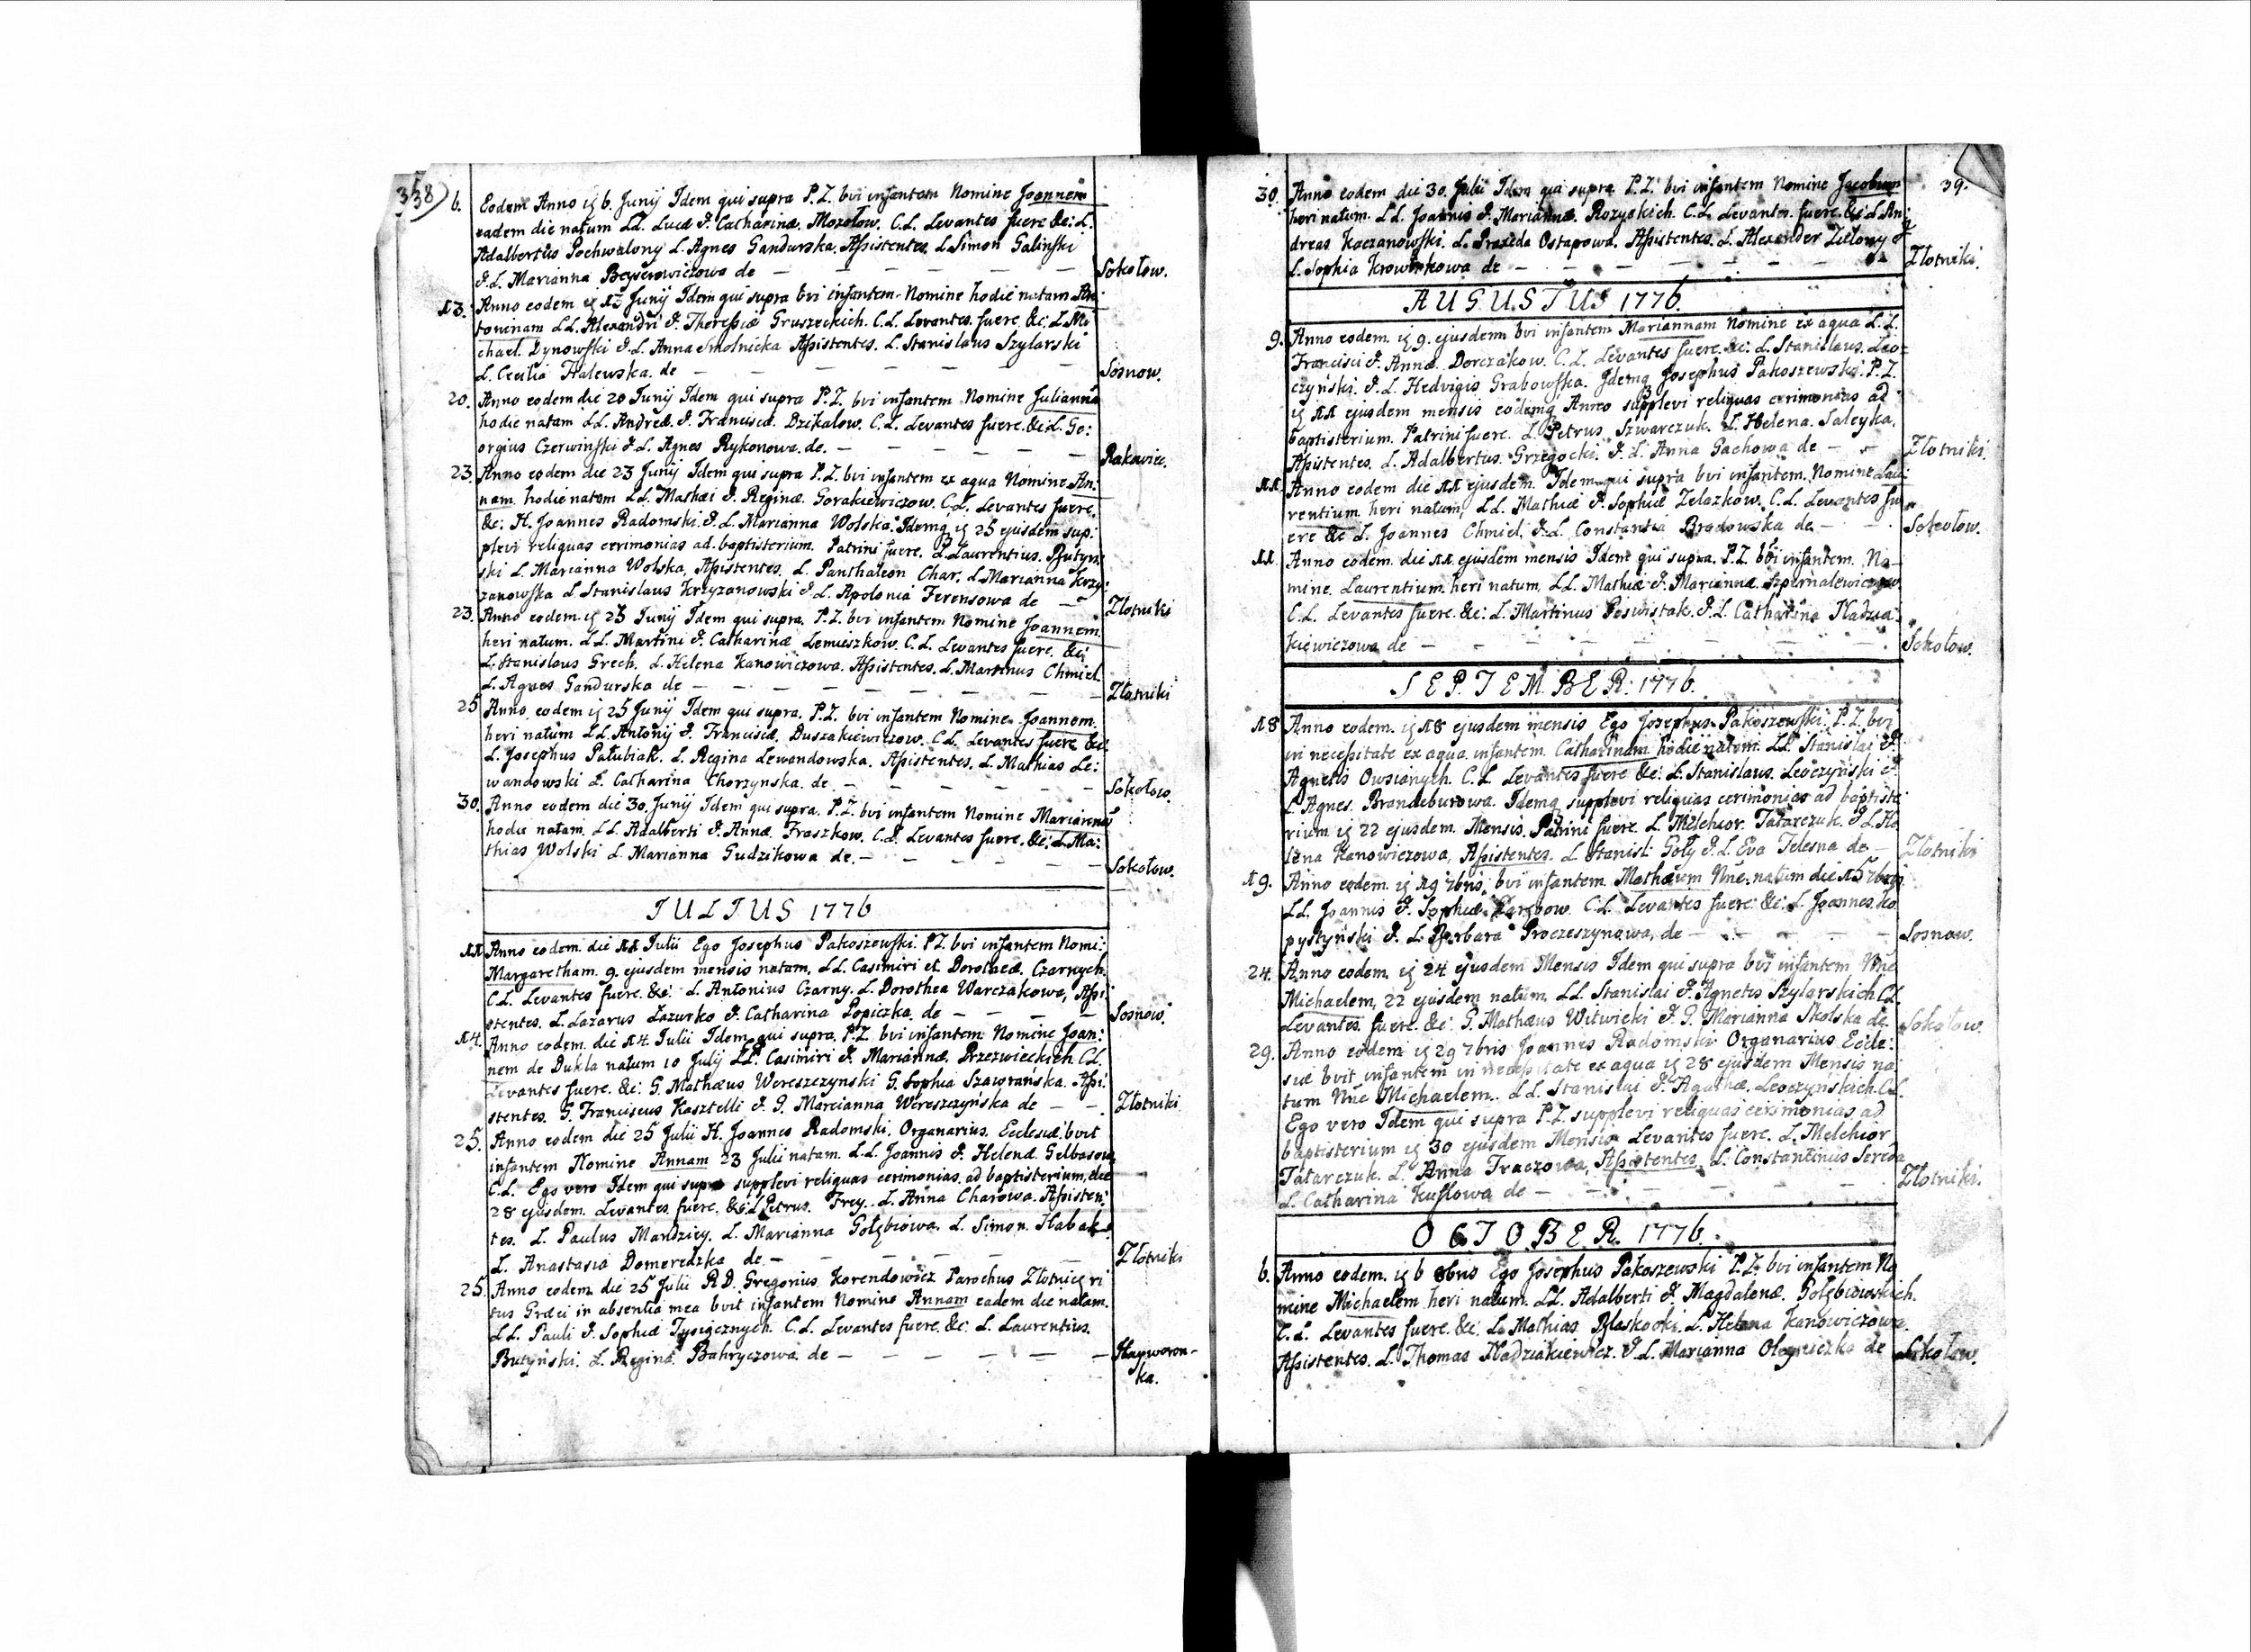 338
6. Eodem Anno ig 6. Junij Idem qui supra P.Z. bvi infantem Nomine Joannem
eadem die natum LL. Lucæ & Catharinæ Mozołow. C.L. Levantes fuere &c: L.
Adalbertus Pochwalony L. Agnes Gandurska. Assistentes. L. Simon Galinski
& L. Marianna Beyserowiczowa de — Sokołow.
13. Anno eodem ig 13 Junij Idem qui supra bvi infantem Nomine hodie natam An:
toninam LL. Alexandri & Theresiæ Gruszeckich. C.L. Levantes fuere &c: L. Mi
chael. Dynowski & L. Anna Smolnicka Assistentes. L. Stanislaus Szylarski
L. Cecilia Halewska. de — Sosnow.
20. Anno eodem die 20 Junij Idem qui supra P.Z. bvi infantem Nomine Juliannā
hodie natam LL. Andreæ & Franciscæ. Dzikalow. C.L. Levantes fuere. &c: L. Ge:
orgius Czerwinski & L. Agnes Rykonowa. de. — Rakowiec.
23. Anno eodem die 23 Junij Idem qui supra P.Z. bvi infantem ex aqua Nomine An:
nam. hodie natam LL. Mathæi & Reginæ. Gorakiewiczow. C.L. Levantes fuere.
&c: H. Joannes Radomski & L. Marianna Wolska. Idemq ig 25 ejusdem sup:
plevi reliquas cerimonias ad baptisterium. Patrini fuere. L. Laurentius. Butyn:
ski L. Marianna Wolska, Assistentes. L. Panthaleon Char. L. Marianna Krzy:
zanowska L. Stanislaus Krzyzanowski & L. Apolonia Ferensowa de — Złotniki
23. Anno eodem ig 23 Junij Idem qui supra. P.Z. bvi infantem Nomine Joannem
heri natum. LL. Martini & Catharinæ Lemiszkow. C.L. Levantes fuere. &c:
L. Stanislaus Grech. L. Helena Kanowiczowa. Assistentes. L. Martinus Chmiel.
L. Agnes Gandurska de — Złotniki
25 Anno eodem ig 25 Junij Idem qui supra. P.Z. bvi infantem Nomine Joannem.
heri natum LL. Antonij & Franciscæ. Duszakiewiczow. C.L. Levantes fuere &c:
L. Josephus Pałubiak. L. Regina Lewandowska. Assistentes. L. Mathias Le:
wandowski L. Catharina Chorzynska. de — Sokołow.
30. Anno eodem die 30. Junij Idem qui supra. P.Z. bvi infantem Nomine Mariannā
hodie natam. LL. Adalberti & Annæ. Fraszkow. C.L. Levantes fuere. &c: L. Ma:
thias Wolski L. Marianna Gudzikowa de. — Sokołow.
JULIUS 1776
11 Anno eodem. die 11 Julii Ego Josephus Pakoszewski. P.Z. bvi infantem Nomi:
Margaretham. 9. ejusdem mensis natam, LL. Casimiri et Dorotheæ. Czarnych.
C.L. Levantes fuere. &c: L. Antonius Czarny. L. Dorothea Warczakowa, Assi:
stentes. L. Lazarus Łazurko & Catharina Popiczka. de — Sosnow.
14. Anno eodem. die 14 Julii Idem qui supra. P.Z. bvi infantem Nomine Joan:
nem de Dukla natum 10 Julij LL. Casimiri & Mariannæ. Przezwieckich. C.L.
Levantes fuere. &c: G. Mathæus Wereszczynski G. Sophia Szawrańska. Assi:
stentes. G. Franciscus Kasztelli & G. Marcianna Wereszczyńska de — Złotniki
25. Anno eodem die 25 Julii H. Joannes Radomski. Organarius. Ecclesiæ bvit
infantem Nomine Annam 23 Julii natam. L.L. Joannis & Helenæ Gelbasow
C.L. Ego vero Idem qui supra supplevi reliquas cerimonias. ad baptisterium. die
28 ejusdem. Levantes fuere. &c: L. Petrus. Frey. L. Anna Charowa. Assisten:
tes. L. Paulus Mandziey. L. Marianna Gołębiowa. L. Simon. Habak
L. Anastasia Domeredzka de — Złotniki
25. Anno eodem die 25 Julii R.D. Gregorius Korendowicz Parochus Złotnicen ri
tus Græci in absentia mea bvit infantem Nomine Annam eadem die natam.
LL. Pauli & Sophiæ Tysięcznych. C.L. Levantes fuere. &c: L. Laurentius.
Butyński. L. Regina Bahryczowa de — Hayworon-
ka.
39.
30. Anno eodem die 30. Julii Idem qui supra P.Z. bvi infantem Nomine Jacobum
heri natum. LL. Joannis & Mariannæ. Rozyckich. C.L. Levantes. fuere. &c: L. An:
dreas Kaczanowski. L. Praxeda Ostapowa. Assistentes. L. Alexander Zielony &
L. Sophia Krowinkowa de — Złotniki.
AUGUSTUS 1776.
9. Anno eodem. ig 9. ejusdem bvi infantem Mariannam Nomine ex aqua L.L.
Francisci & Annæ. Dorczakow. C.L. Levantes fuere. &c: L. Stanislaus. Leo:
czyński. & L. Hedvigis Grabowska. Idemq Josephus Pakoszewski. P.Z.
ig 11 ejusdem mensis eodemq Anno supplevi reliquas cerimonias ad
baptisterium. Patrini fuere. L. Petrus Szwarczuk. L. Helena. Saleyka.
Assistentes. L. Adalbertus. Grzegocki. & L. Anna Gachowa de — Złotniki.
11. Anno eodem die 11 ejusdem. Idem qui supra bvi infantem. Nomine Lau:
rentium heri natum, LL. Mathiæ & Sophiæ Zelazkow. C.L. Levantes fu
ere &c L. Joannes Chmiel. & L. Constantia Brodowska de — Sokołow.
11. Anno eodem. die 11 ejusdem mensis Idem qui supra. P.Z. bvi infantem. No-
mine. Laurentium heri natum, LL. Mathiæ & Mariannæ. Szpernalewiczow.
C.L. Levantes fuere. &c: L. Martinus Poswistak. & L. Catharina Nadzia:
kiewiczowa de — Sokołow.
SEPTEMBER: 1776.
18 Anno eodem. ig 18 ejusdem mensis Ego Josephus Pakoszewski. P.Z. bvi
in necessitate ex aqua infantem. Catharinam hodie natam. LL. Stanislai &
Agnetis Owsianych. C.L. Levantes fuere &c: L. Stanislaus. Leoczyński &
L. Agnes. Brandeburowa. Idemq supplevi reliquas cerimonias ad baptiste
rium ig 22 ejusdem. Mensis. Patrini fuere. L. Melchior. Tatarczuk. & L. He
lena Kanowiczowa, Assistentes. L. Stanisl: Goły & L. Eva Telesna de — Złotniki
19. Anno eodem. ig 19 7bris, bvi infantem Mathæum Nne. natum die 15 7bris
LL. Joannis & Sophiæ C.L. Levantes fuere: &c: L. Joannes. Ko
pystyński & L. Barbara Proczeszynowa, de — Sosnow.
24. Anno eodem. ig 24 ejusdem Mensis Idem qui supra bvi infantem Nne
Michaelem, 22 ejusdem natum. LL. Stanislai & Agnetis Szylarskich C.L.
Levantes fuere. &c: G. Mathæus Witwicki & G. Marianna Skolska de Sokołow.
29. Anno eodem ig 29 7bris Joannes Radomski Organarius Eccle:
siæ bvit infantem in necessitate ex aqua ig 28 ejusdem Mensis na
tum Nne Michaelem. LL. Stanislai & Agathæ. Leoczynskich. C.L.
Ego vero Idem qui supra P.Z. supplevi reliquas cerimonias ad
baptisterium ig 30 ejusdem Mensis Levantes fuere. L. Melchior
Tatarczuk. L. Anna Traczowa, Assistentes. L. Constantinus Sereda
L. Catharina Kuslowa de — Złotniki.
OCTOBER. 1776.
6. Anno eodem. ig 6 8bris Ego Josephus Pakoszewski P.Z. bvi infantem No
mine Michaelem heri natum. LL. Adalberti & Magdalenæ. Gołębiowskich.
C.L. Levantes fuere. &c: L. Mathias Błaskocki. L. Helena Kanowiczowa.
Assistentes. L. Thomas Nadziakiewicz. & L. Marianna de Sokołow.